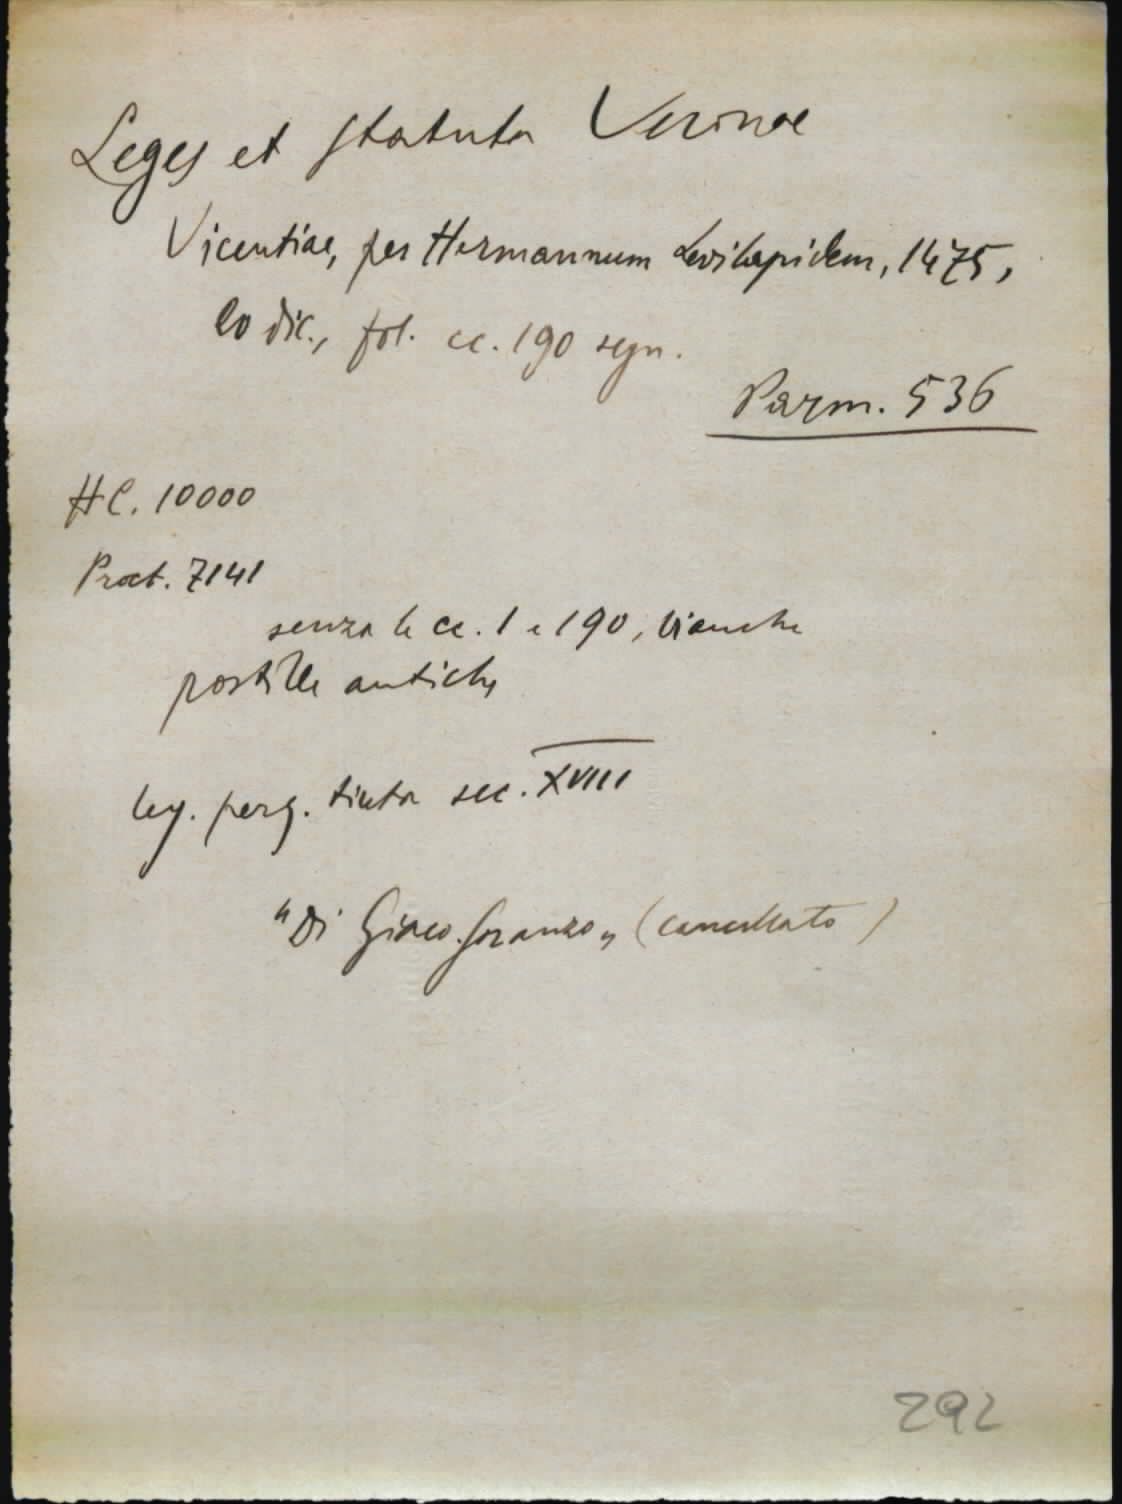 Leges et Statuta Veronae
Vicentiae, per Hermannum Levilapidem, 1475,
20 dic., fol. cc. 190 segn.
Parm. 536
HC. 10000
Proct. 7141
senza le cc. 1 e 190, bianche
postille antiche
leg. perg. tinta sec. XVIII
"Di Giaco. Soranzo„ (cancellato)
292